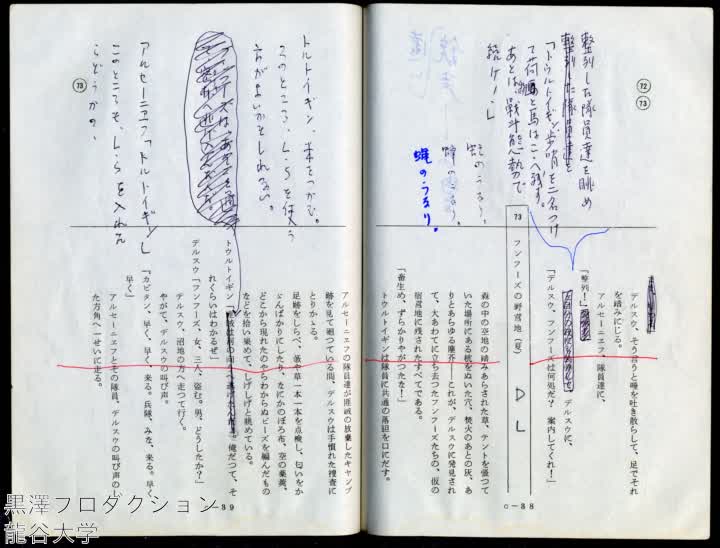 ㊆㊂
整列した隊員達を眺め
整列した隊員達を
「トウルトイギン、歩哨を二名つけ
て荷物と馬はこゝへ残す。
あとは、戦斗態勢で
続け！」
蛇のうなり。
蝿のうなり。
蝿のうなり。
デルスウ、そう言うと唾を吐き散らして、足でそれ
を踏みにじる。
アルセーニエフ、隊員達に、
「整列！」
デルスウに、
「デルスウ、フンフーズは何処だ？　案内してくれ！」
73　フンフーズの野営地（夏）
D L
森の中の空地の踏みあらされた草、テントを張つて
いた場所にある杭をぬいた穴、焚火のあとの灰、あ
りとあらゆる塵芥――これが、デルスウに発見され
て、大あわてに立ち去つたフンフーズたちの、仮の
宿営地に残されたすべてである。
「畜生め、ずらかりやがつたな！」
トウルトイギンは隊員に共通の落胆を口にだす。
C―38
トルトイギン、糸をつかむ。
このところ、L・Sを使う
方がよいかもしれない。
アルセーニエフ「トルトイギン」
このところも、L・Sを入れた
らどうかの、
73
アルセーニエフの隊員達が匪賊の放棄したキャンプ
跡を見て廻つている間、デルスウは手慣れた捜査に
とりかゝる。
足跡をしらべ、葉や草一本一本を点検し、匂いをか
ぎ、何かのぼろ布、空の薬莢、
どこから現れたのやらわからぬビーズを編んだもの
などを拾い集めて、しげしげと眺めている。
トウルトイギン「
俺だつて、そ
れくらいはわかるぜ」
デルスウ「フンフーズ、女、三人、盗む。男、どうしたか？」
デルスウ、沼地の方へ走つて行く。
やがて、デルスウの叫び声。
「カピタン、早く、早く、来る。兵隊、みな、来る。早く、
早く」
アルセーニエフとその隊員、デルスウの叫び声のし
た方角へ一せいに走る。
―39
黒澤プロダクション
龍谷大学